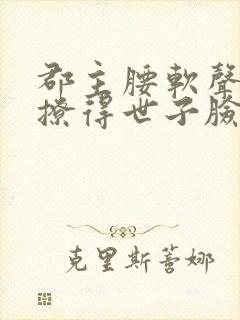 郡主腰軟聲
撩得世子臉
克里斯蒂娜